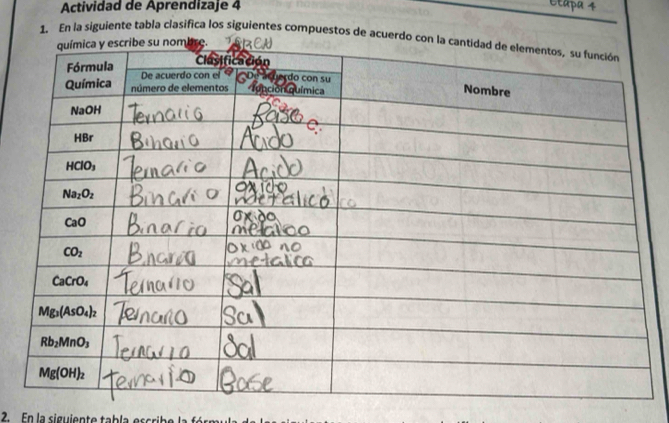 Actividad de Aprendizaje 4
Etapa 4
1. En la siguiente tabla clasifica los siguientes compuestos de acuerdo con la cantidad de elementos, su función
química y escribe su nombre.
Fórmula Química
Clasificación
De acuerdo con el número de elementos
De acuerdo con su función química
Nombre
NaOH Ternario Base
HBr Binario Acido
HClO₃ Ternario Acido
Na₂O₂ Binario oxido metalico
CaO Binario oxido
CO₂ Binario oxido no metalico
CaCrO₄ Ternario Sal
Mg₃(AsO₄)₂ Ternario Sal
Rb₂MnO₃ Ternario Sal
Mg(OH)₂ ternario Base
2. En la siguiente tabla escribe la fórmula